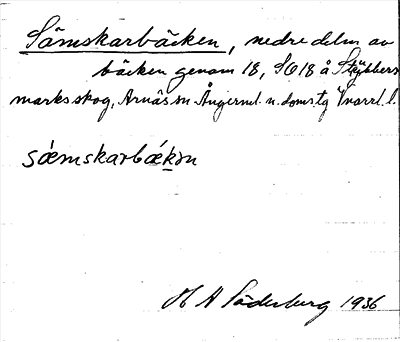 Sämskarbäcken, nedre delen av
bäcken genom 18, SO 18 å Stybbers
marks skog, Arnäs sn Ångerml. n. doms.tg Västrl. l.
sǽmskarbǽkɔn
H A Söderberg 1936